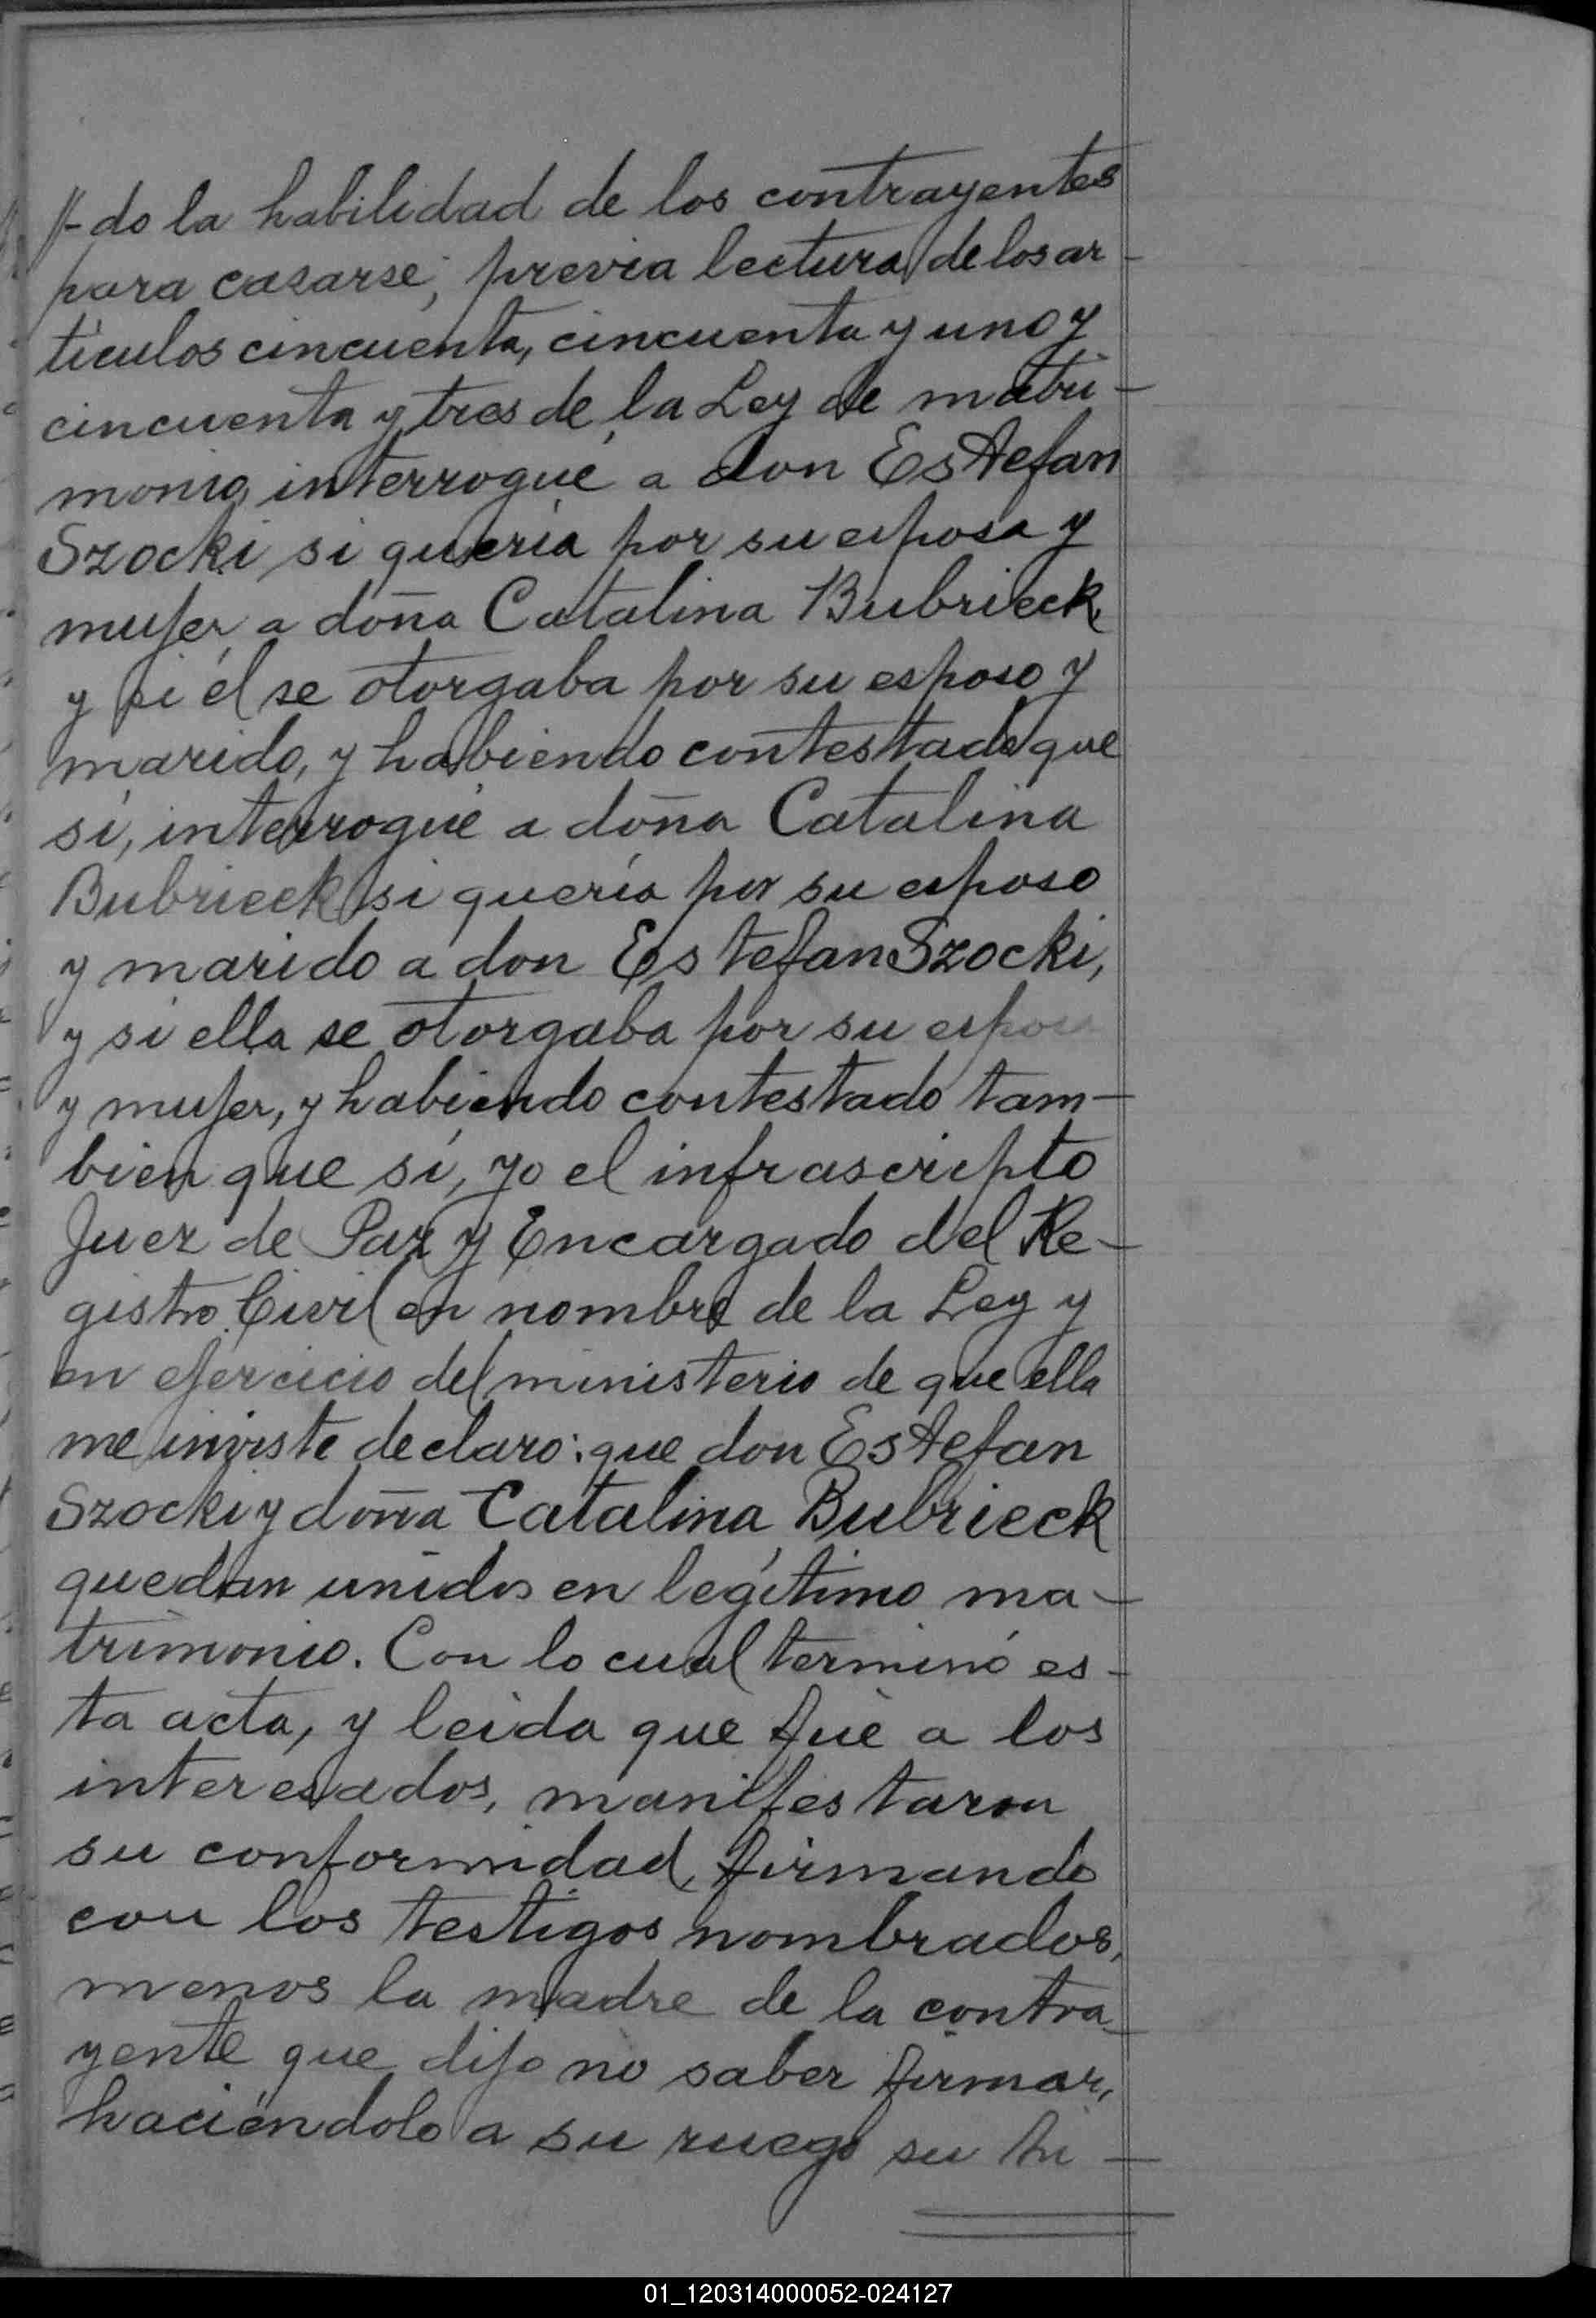 //-do la habilidad de los contrayentes
para casarse; previa lectura de los ar-
tículos cincuenta, cincuenta y uno y
cincuenta y tres de la Ley de matri-
monio, interrogué a don Estefan
Szocki si quería por su esposa y
mujer a doña Catalina Bubrieck,
y si él se otorgaba por su esposo y
marido, y habiendo contestado que
sí, interrogué a doña Catalina
Bubrieck si quería por su esposo
y marido a don Estefan Szocki,
y si ella se otorgaba por su esposa
y mujer, y habiendo contestado tam-
bien que sí, yo el infrascripto
Juez de Paz y Encargado del Re-
gistro Civil en nombre de la Ley y
en ejercicio del ministerio de que ella
me inviste declaro: que don Estefan
Szocki y doña Catalina Bubrieck
quedan unidos en legítimo ma-
trimonio. Con lo cual terminó es-
ta acta, y leida que fué a los
interesados, manifestaron
su conformidad, firmando
con los testigos nombrados,
menos la madre de la contra-
yente que dijo no saber firmar,
haciéndolo a su ruego su hi-
01_120314000052-024127